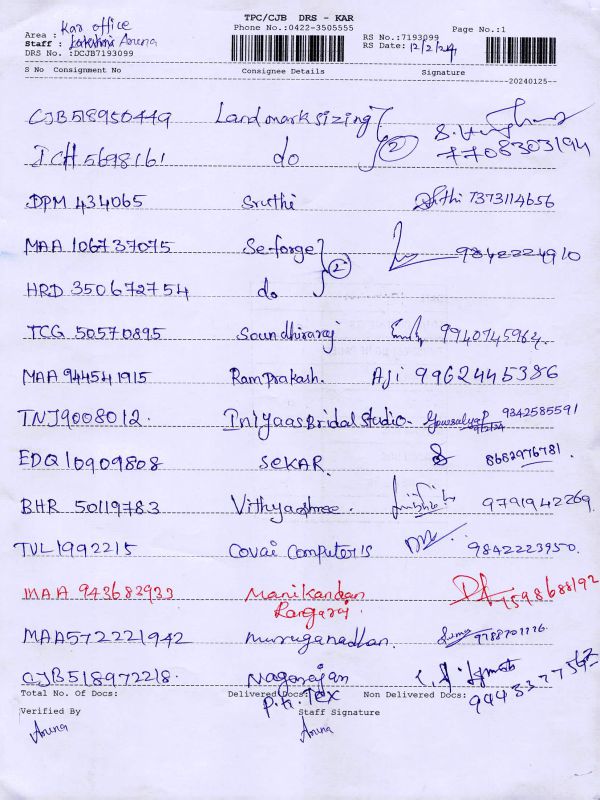 TPC/CJB DRS - KAR
Phone No.:0422-3505555
Page No.:1
Area : Kar office
Staff : Lakshmi Aruna
DRS No. :DCJB7193099
RS No.:7193099
RS Date: 12/2/24
S No Consignment No Consignee Details Signature
20240125
CJB518950449 Landmarksizing 2 7708303194
ICH 5698161 do
DPM 434065 Sruthi 7373114656
MAA 106737075 Se-forge 2 9842224910
HRD 350672754 do
TCG 50570895 Soundhiraraj 9940745964.
MAA 944541915 Ramprakash. Aji 9962445386
TNJ9008012. IniyaasBridalStudio- 9342585591
EDQ 10909808 SEKAR. 8682976781.
BHR 50119783 Vithyashree. 9791942269.
TVL1992215 Covai Computers 9842223950.
MAA 943682933 Manikandan 7598688192
Rangaraj.
MAA572221942 Muruganadhan.
CJB518972218. Nagarajan 9443377562
Total No. Of Docs: Delivered Docs: Non Delivered Docs:
P.K. Tex
Verified By Staff Signature
Aruna Aruna